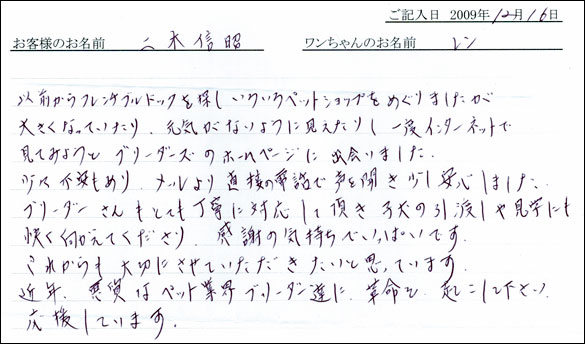 ご記入日 2009年12月16日
お客様のお名前 二木信昭 ワンちゃんのお名前 レン
以前からフレンチブルドックを探しいろいろペットショップをめぐりましたが
大きくなっていたり、元気がないように見えたりし一度インターネットで
見てみようと ブリーダーズのホームページに出会いました。
少々不安もあり、メールより直接の電話で声を聞き少し安心しました。
ブリーダーさんもとても丁寧に対応して頂き子犬の引渡しや見学にも
快く伺がえてくださり、感謝の気持ちでいっぱいです。
これからも大切にさせていただきたいと思っています。
近年、悪質なペット業界ブリーダー達に、革命を起こして下さい
応援しています。